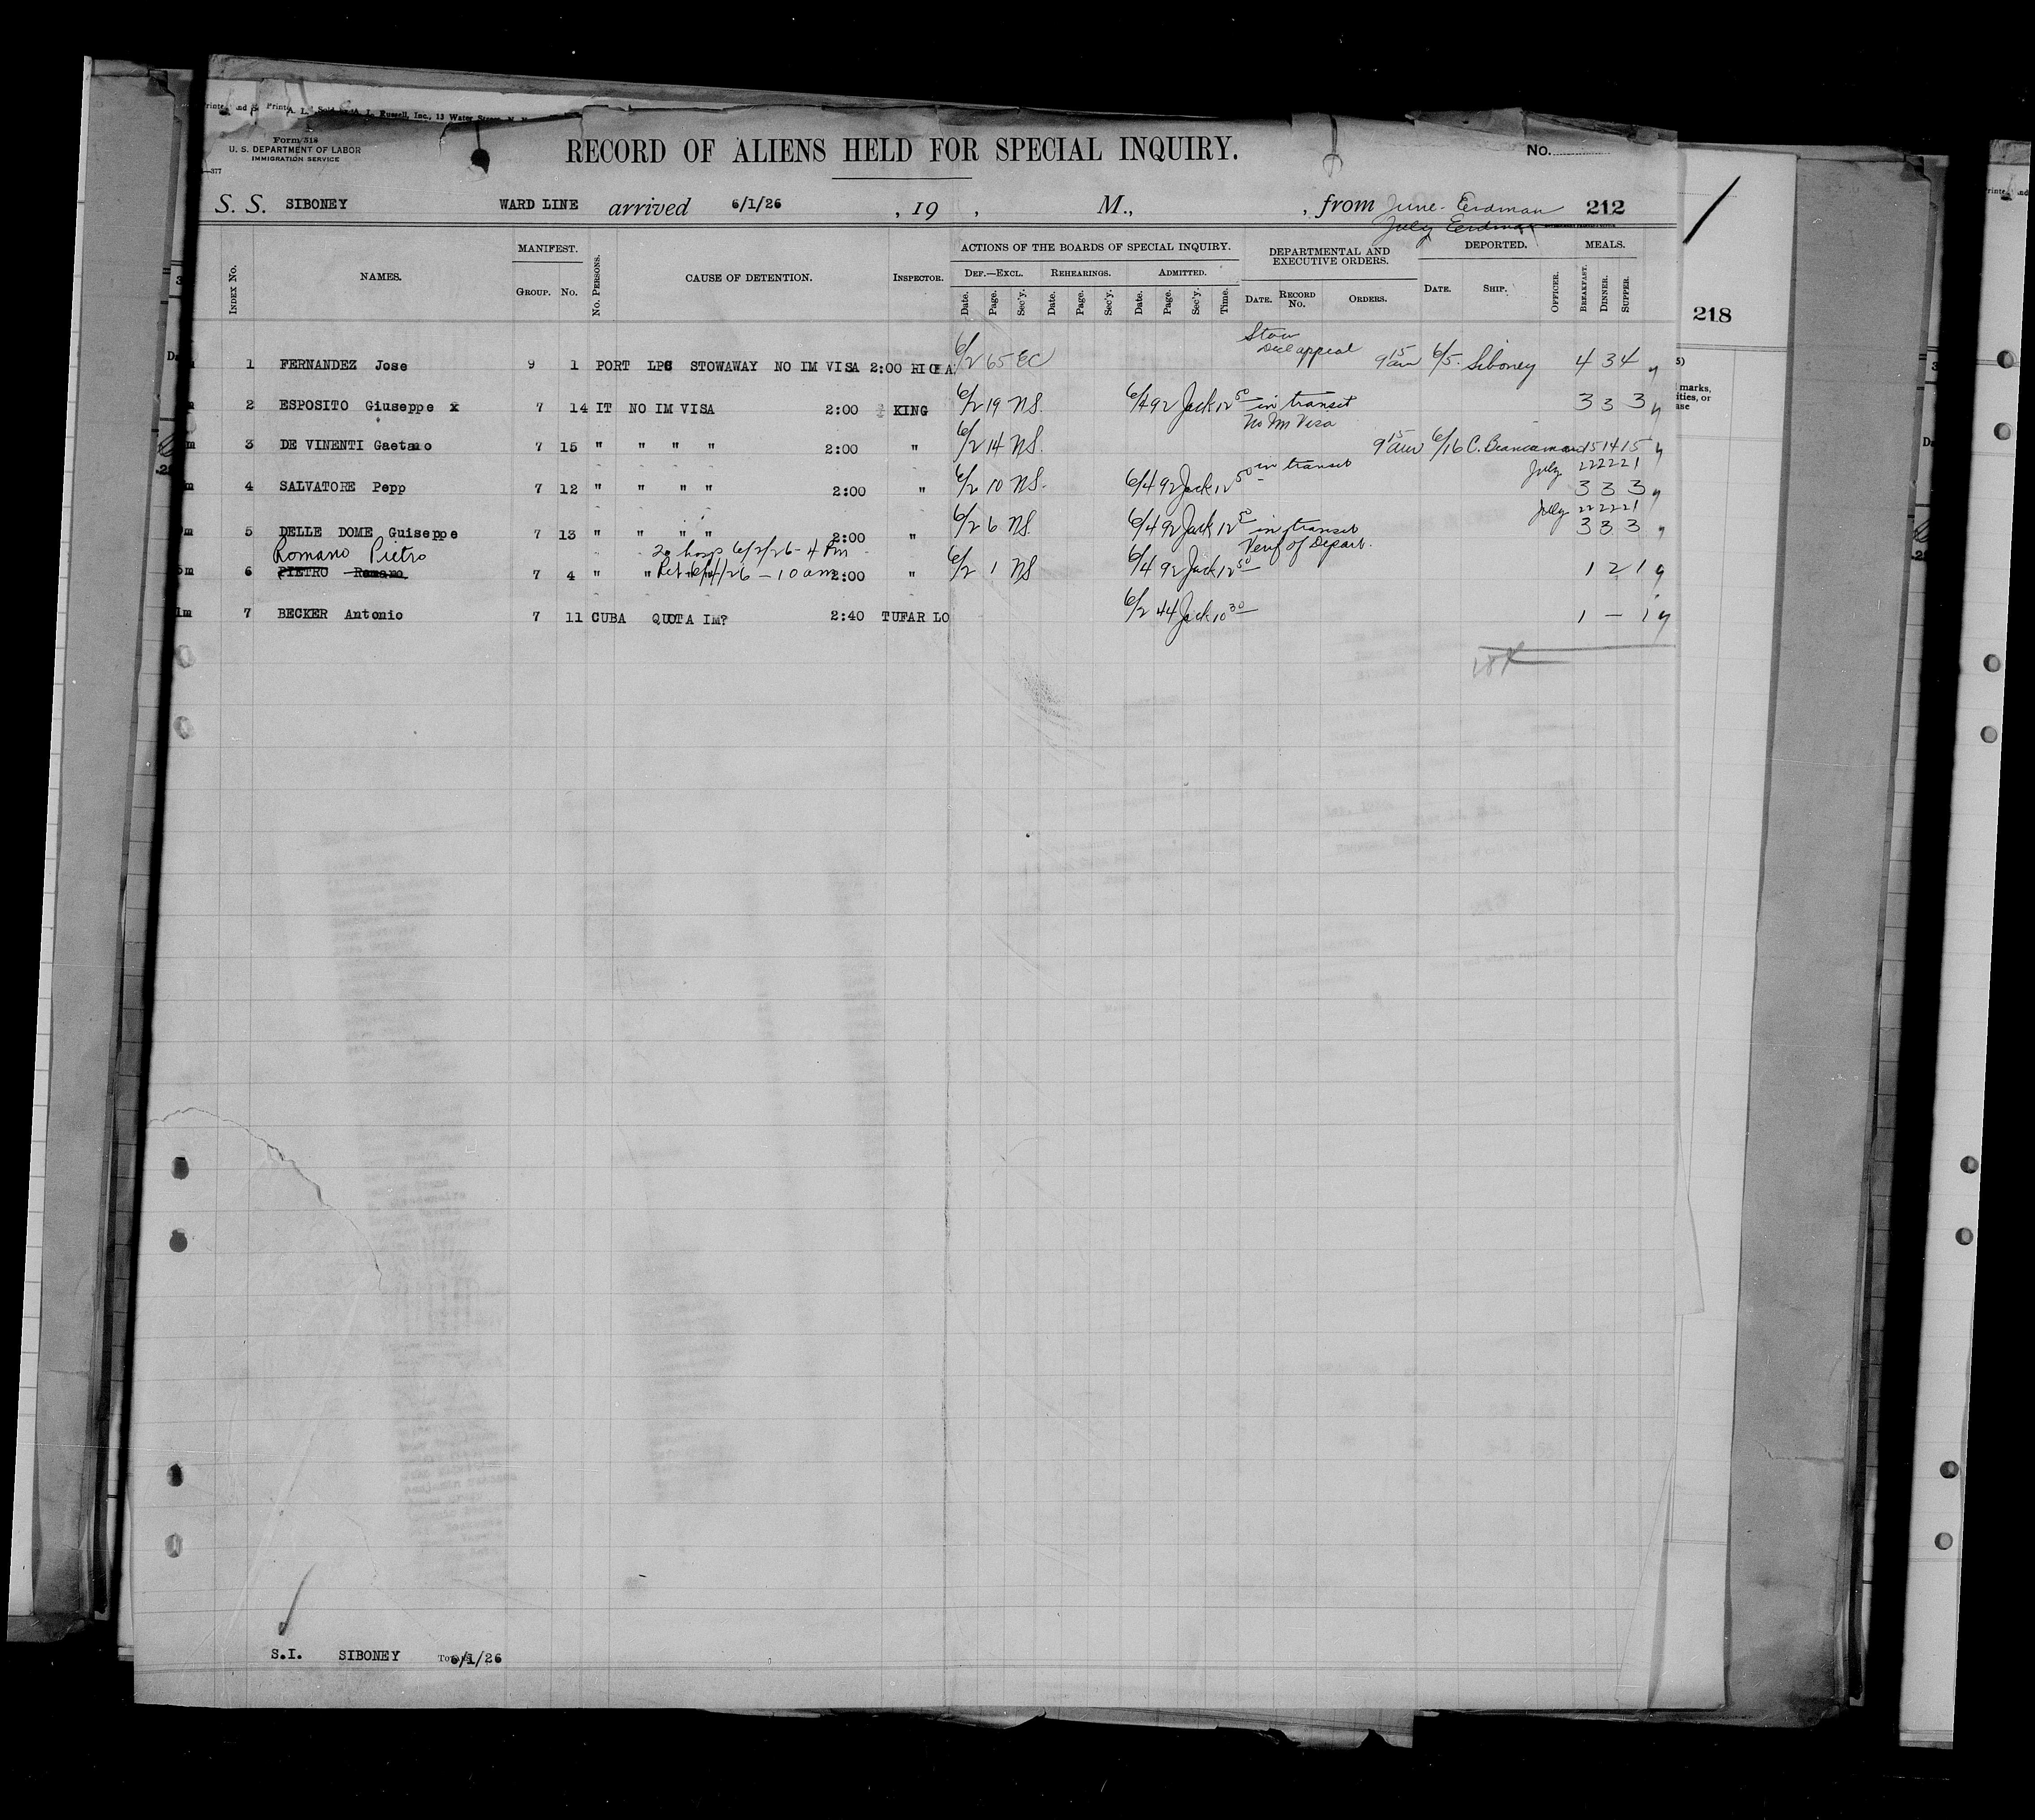 A. L. Russell, Inc., 13 Water Street, N.
Form 518
U. S. DEPARTMENT OF LABOR
IMMIGRATION SERVICE
—377
RECORD OF ALIENS HELD FOR SPECIAL INQUIRY.
No.
S. S. SIBONEY WARD LINE arrived 6/1/26 , 19 , M., , from June - Eerdman 212
July Eerdman
INDEX No. NAMES. MANIFEST. GROUP. No. No. PERSONS. CAUSE OF DETENTION. INSPECTOR. ACTIONS OF THE BOARDS OF SPECIAL INQUIRY. DEF.—EXCL. Date. Page. Sec'y. REHEARINGS. Date. Page. Sec'y. ADMITTED. Date. Page. Sec'y. Time. DEPARTMENTAL AND EXECUTIVE ORDERS. DATE. RECORD No. ORDERS. DEPORTED. DATE. SHIP. OFFICER. MEALS. BREAKFAST. DINNER. SUPPER.
218
Stow
Decl appeal
1 FERNANDEZ Jose 9 1 PORT LPC STOWAWAY NO IM VISA 2:00 6/2 65 EC 9 15 am 6/5. Siboney 4 3 4 y
2 ESPOSITO Giuseppe x 7 14 IT NO IM VISA 2:00 KING 6/2 19 NS. 6/4 92 Jack 12 50 in transit 3 3 3 y
No Im Visa
3 DE VINENTI Gaetano 7 15 " " " " 2:00 " 6/2 14 NS. 9 15 am 6/16 C. Biancamano 15 14 15 y
in transit July 22 22 21
4 SALVATORE Pepp 7 12 " " " " 2:00 " 6/2 10 NS. 6/4 92 Jack 12 50 3 3 3 y
July 22 22 21
5 DELLE DOME Guiseppe 7 13 " " " " 2:00 " 6/2 6 NS. 6/4 92 Jack 12 50 in transit 3 3 3 y
Romano Pietro To hosp 6/2/26 - 4 Pm Verif of Depart.
6 PIETRO Romano 7 4 " " Ret 6/4/26 - 10 am 2:00 " 6/2 1 NS 6/4 92 Jack 12 50 1 2 1 y
7 BECKER Antonio 7 11 CUBA QUOTA IM? 2:40 TUFAR LO 6/2 44 Jack 10 30 1 - 1 y
S.I. SIBONEY 6/1/26